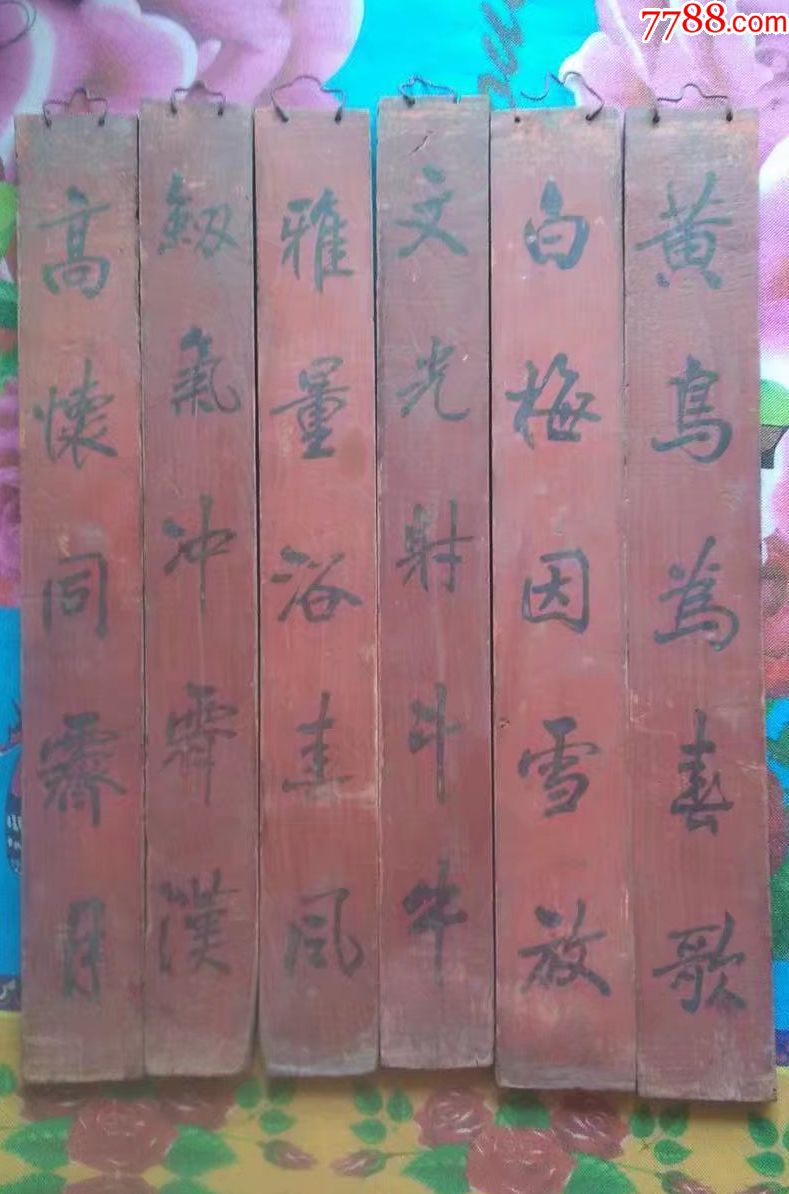 7788.com
黄鳥為春歌
白梅因雪放
文光射斗牛
雅量浴春風
釼氣冲霄漢
高懷同霽月